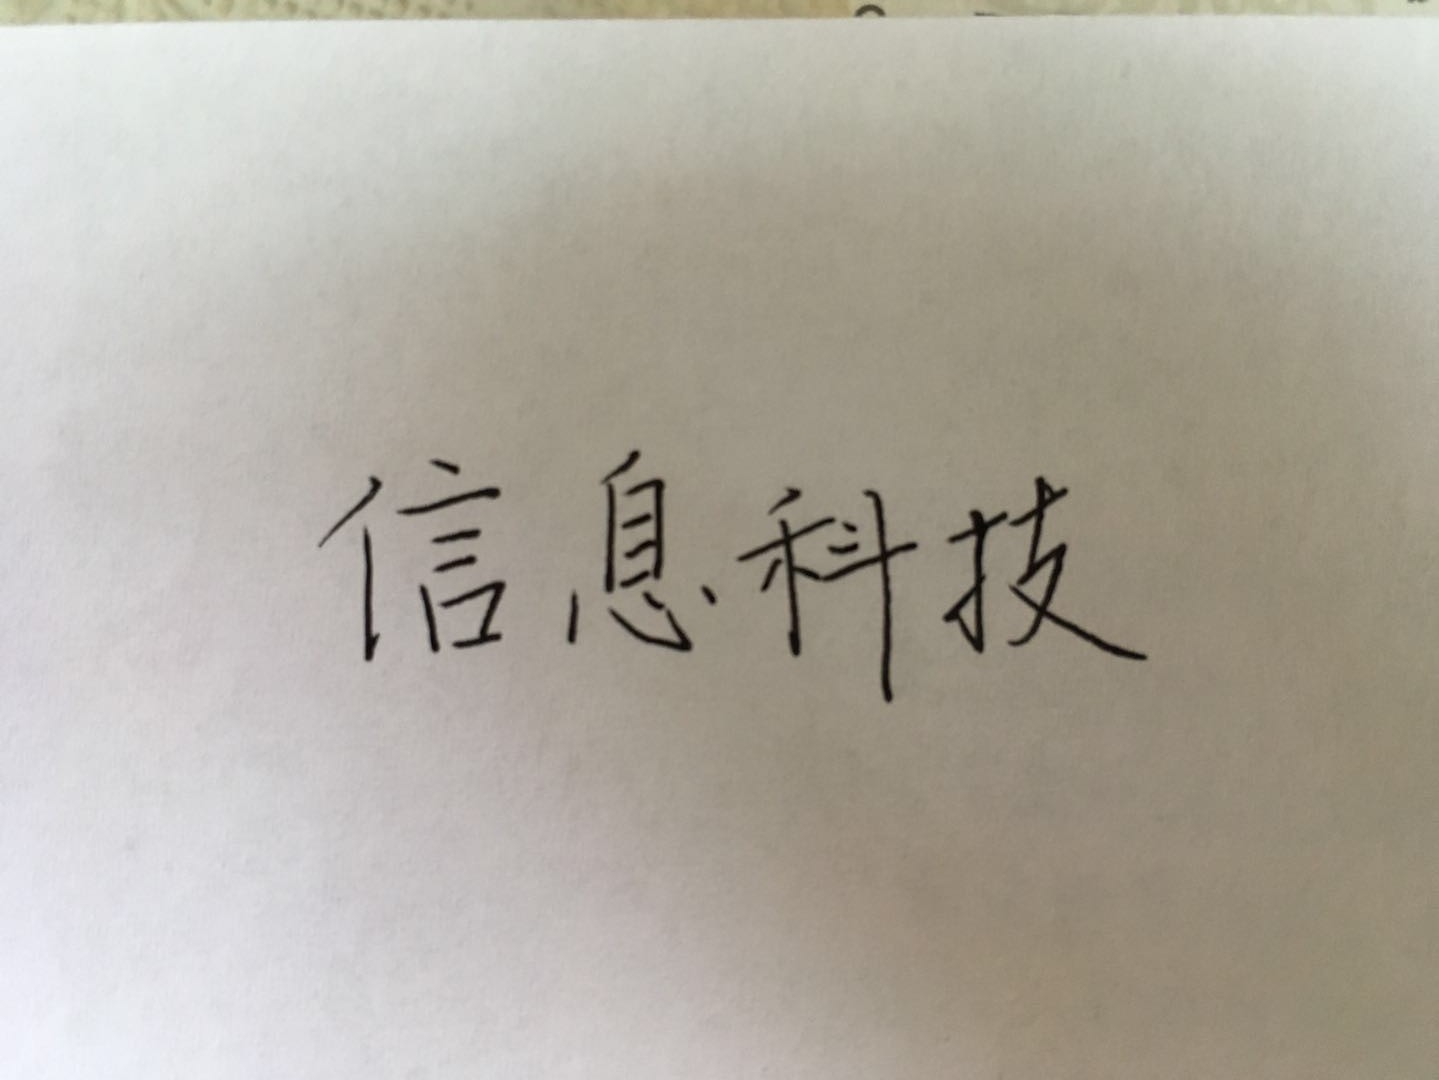 信息科技